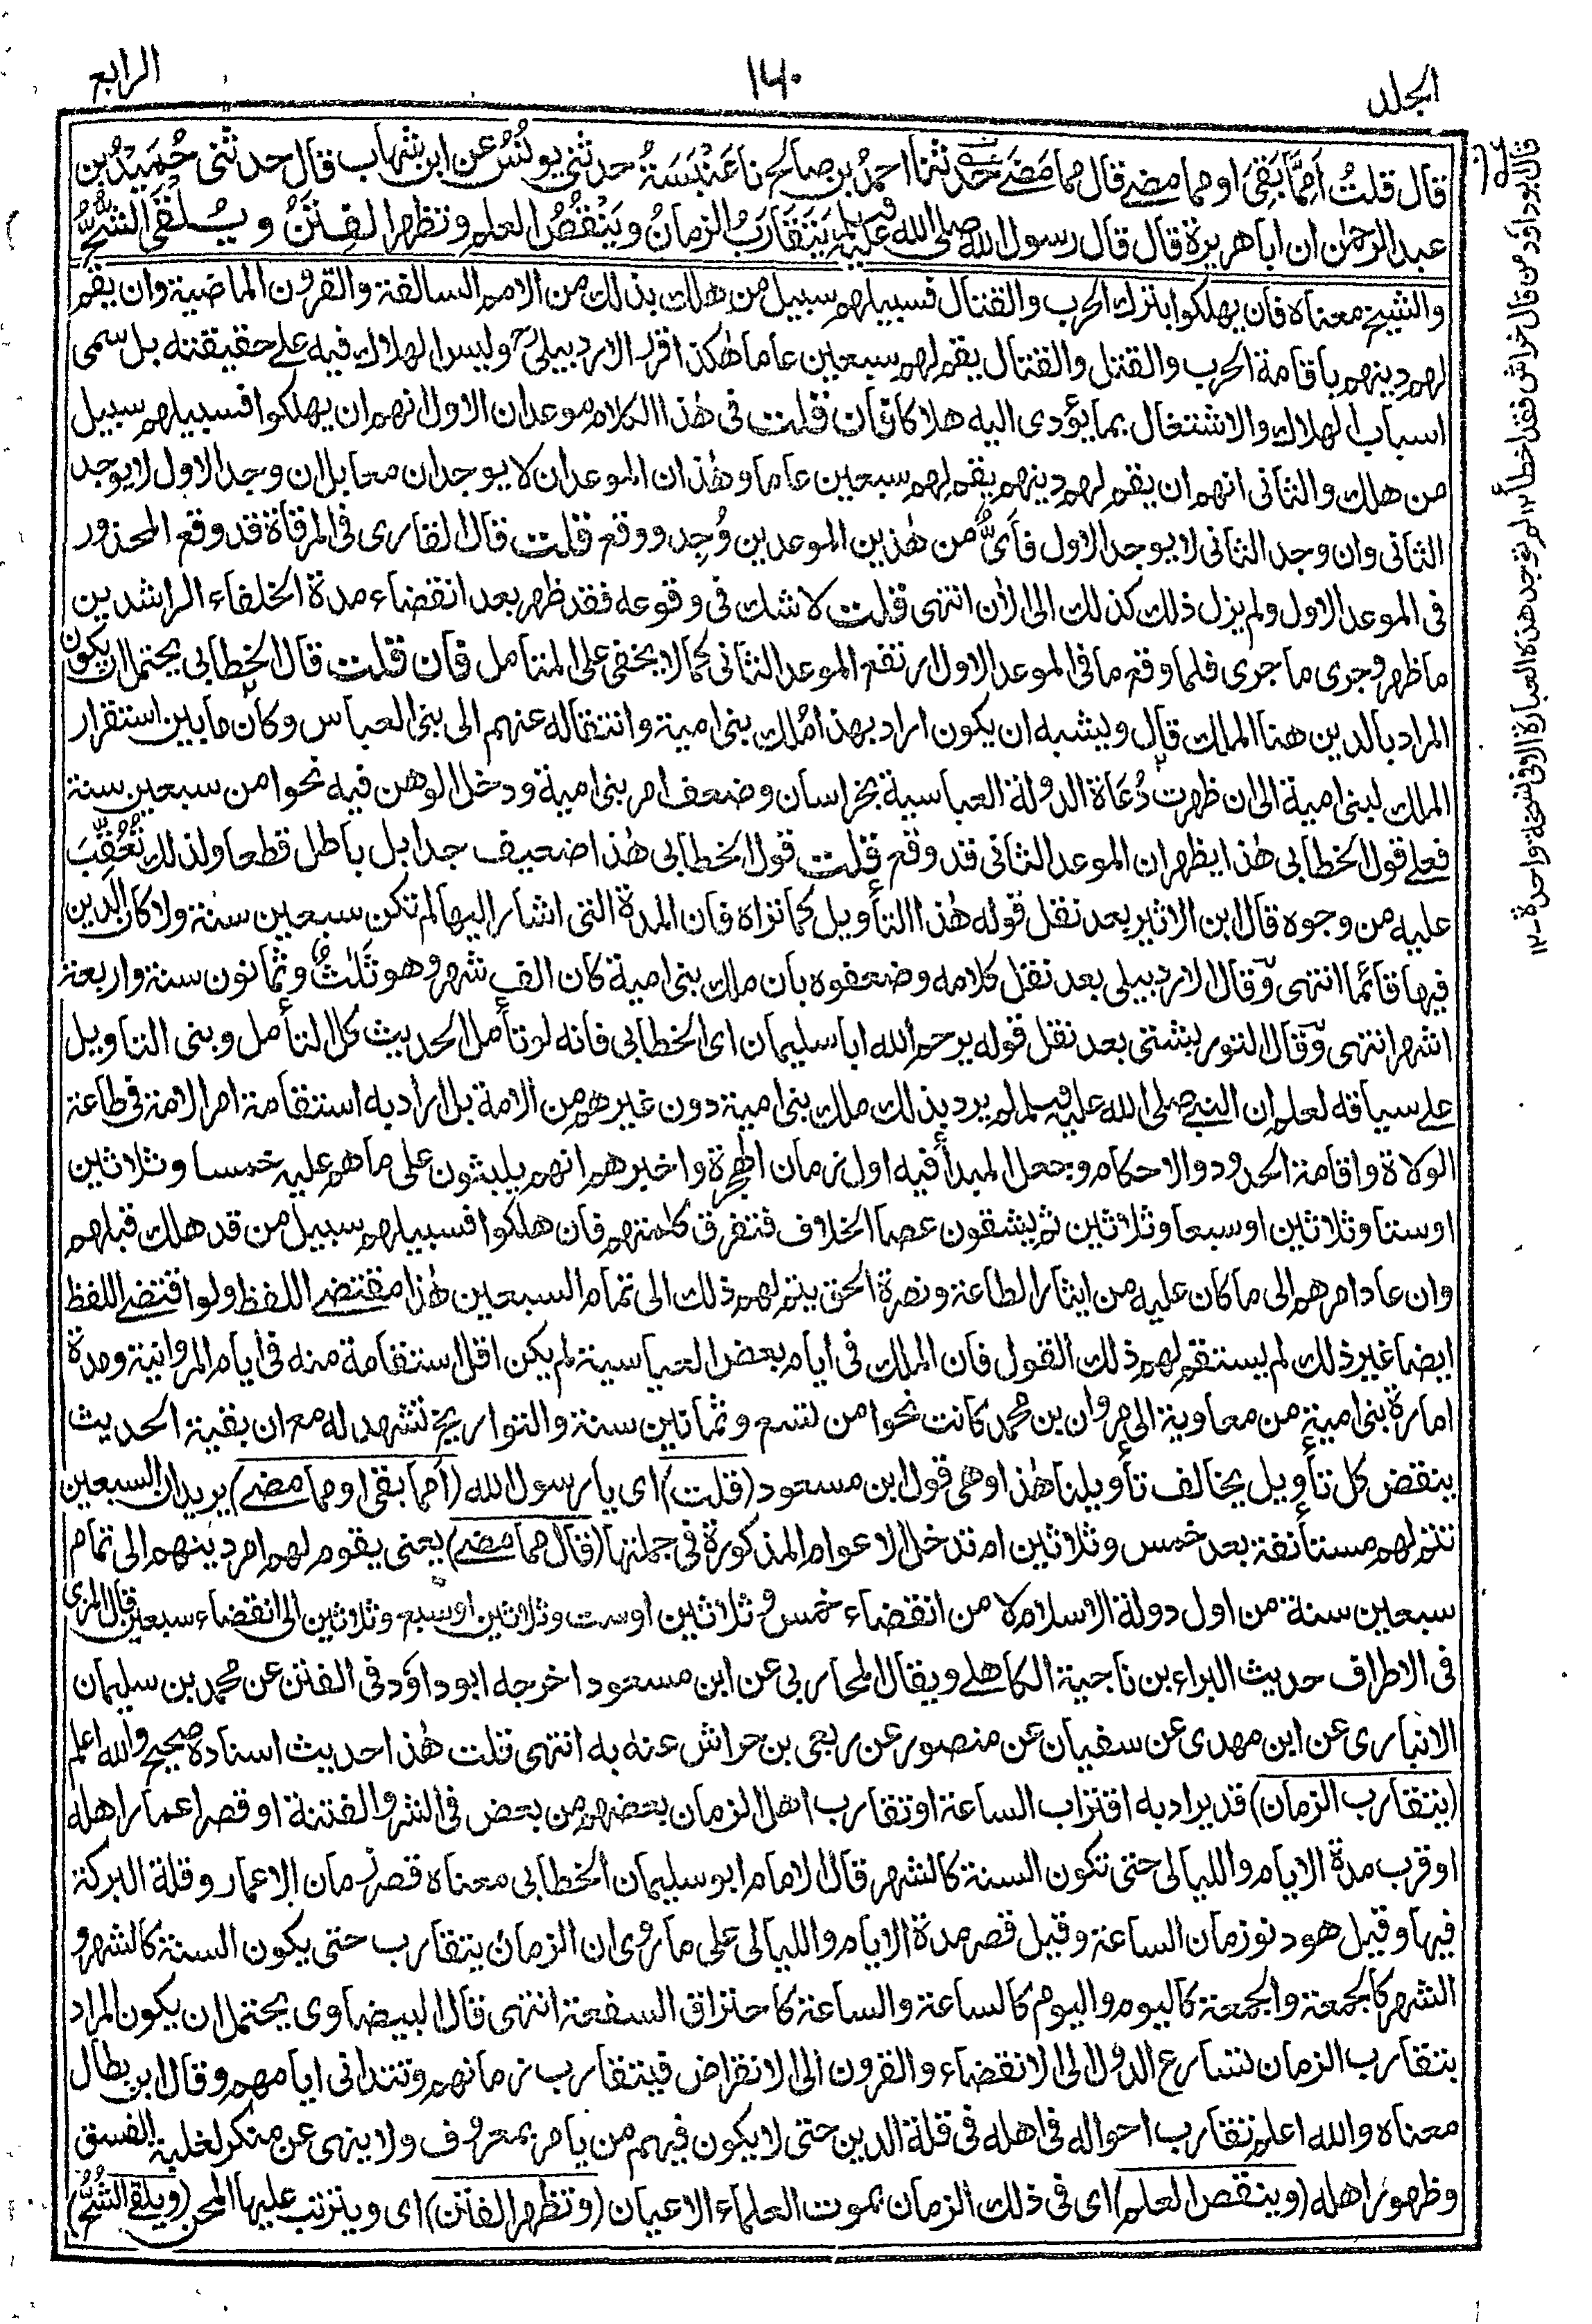 الجلد
١٦٠
الرابع
قال قلتُ اَمِمَّا بَقِيَ او مما مضے قال مما مَضَے حدثنا احمدُ بن صالح نا عَنْبَسَةُ حدثني يونُسُ عن ابن شهاب قال حدثني حُمَيدُ بن
عبد الرحمٰن ان ابا هريرة قال قال رسول الله صلى الله عليه وسلم يَتَقَارَبُ الزمانُ ويَنْقُصُ العلم وتظهر الفِتَنُ و يُلْقَى الشُّحُّ
والشيخ معناه فان يهلكوا بترك الحرب والقتال فسبيلهم سبيل من هلك بذلك من الامم السالفة والقرون الماضية وان يقم
لهم دينهم باقامة الحرب والقتل والقتال يقم لهم سبعين عاما هٰكذا قرر الاردبيلي وليس الهلاك فيه على حقيقته بل سمى
اسباب الهلاك والاشتغال بما يؤدى اليه هلاكا فان قلت فى هٰذا الكلام موعدان الاول انهم ان يهلكوا فسبيلهم سبيل
من هلك والثانى انهم ان يقم لهم دينهم يقم لهم سبعين عاما وهٰذان الموعدان لا يوجدان معا بل ان وجد الاول لا يوجد
الثانى وان وجد الثانى لا يوجد الاول فاَيٌّ من هٰذين الموعدين وُجِد ووقع قلت قال القارى فى المرقاة قد وقع المحذور
فى الموعد الاول ولم يزل ذلك كذلك الى الاٰن انتهى قلت لا شك فى وقوعه فقد ظهر بعد انقضاء مدة الخلفاء الراشدين
ما ظهر وجرى ما جرى فلما وقع ما فى الموعد الاول ارتفع الموعد الثانى كما لا يخفى على المتامل فان قلت قال الخطابى يحتمل ان يكون
المراد بالدين هنا الملك قال ويشبه ان يكون اراد بهذا مُلك بنى امية وانتقاله عنهم الى بنى العباس وكان ما بين استقرار
الملك لبنى امية الى ان ظهرت دُعَاة الدولة العباسية بخراسان وضعف امر بنى امية ودخل الوهن فيه نحوا من سبعين سنة
فعلى قول الخطابى هٰذا يظهر ان الموعد الثانى قد وقع قلت قول الخطابى هٰذا ضعيف جدا بل باطل قطعا ولذلك تُعُقِّبَ
عليه من وجوه قال ابن الاثير بعد نقل قوله هٰذا التأويل كما تراه فان المدة التى اشار اليها لم تكن سبعين سنة ولا كان الدين
فيها قائما انتهى وقال الاردبيلى بعد نقل كلامه وضعفوه بان ملك بنى امية كان الف شهر وهو ثَلٰثٌ وثمانون سنة واربعة
اشهر انتهى وقال التوربشتى بعد نقل قوله يرحم الله ابا سليمان اى الخطابى فانه لو تأمل الحديث كل التأمل وبنى التاويل
على سياقه لعلم ان النبي صلى الله عليه وسلم لم يرد بذلك ملك بنى امية دون غيرهم من الامة بل اراد به استقامة امر الامة فى طاعة
الولاة واقامة الحدود والاحكام وجعل المبدأ فيه اول زمان الهجرة واخبرهم انهم يلبثون على ما هم عليه خمسا وثلاثين
او ستا وثلاثين او سبعا وثلاثين ثم يشقون عصا الخلاف فتفرق كلمتهم فان هلكوا فسبيلهم سبيل من قد هلك قبلهم
وان عاد امرهم الى ما كان عليه من ايثار الطاعة ونصرة الحق يتم لهم ذلك الى تمام السبعين هٰذا مقتضى اللفظ ولو اقتضى اللفظ
ايضا غير ذلك لم يستقم لهم ذلك القول فان الملك فى ايام بعض العباسية لم يكن اقل استقامة منه فى ايام المروانية ومدة
امارة بنى امية من معاوية الى مروان بن محمد كانت نحوا من تسع وثمانين سنة والتواريخ تشهد له مع ان بقية الحديث
ينقض كل تأويل يخالف تأويلنا هٰذا وهى قول ابن مسعود (قلت) اى يا رسول الله (أمما بقى او مما مضے) يريد ان السبعين
تتم لهم مستأنفة بعد خمس وثلاثين ام تدخل الاعوام المذكورة فى جملتها (قال مما مضے) يعنى يقوم لهم امر دينهم الى تمام
سبعين سنة من اول دولة الاسلام لا من انقضاء خمس وثلاثين او ست وثلاثين او سبع وثلاثين الى انقضاء سبعين قال المزى
فى الاطراف حديث البراء بن ناجية الكاهلى ويقال المحاربى عن ابن مسعود اخرجه ابو داؤد فى الفتن عن محمد بن سليمان
الانبارى عن ابن مهدى عن سفيان عن منصور عن ربعى بن حراش عنه به انتهى قلت هٰذا حديث اسناده صحيح والله اعلم
(يتقارب الزمان) قد يراد به اقتراب الساعة او تقارب اهل الزمان بعضهم من بعض فى الشر والفتنة او قصر اعمار اهله
او قرب مدة الايام والليالى حتى تكون السنة كالشهر قال الامام ابو سليمان الخطابى معناه قصر زمان الاعمار وقلة البركة
فيها وقيل هو دنو زمان الساعة وقيل قصر مدة الايام والليالى على ما روى ان الزمان يتقارب حتى يكون السنة كالشهر و
الشهر كالجمعة والجمعة كاليوم واليوم كالساعة والساعة كاحتراق السعفة انتهى قال البيضاوى يحتمل ان يكون المراد
بتقارب الزمان تسارع الدول الى الانقضاء والقرون الى الانقراض فيتقارب زمانهم وتتدانى ايامهم وقال ابن بطال
معناه والله اعلم تقارب احواله فى اهله فى قلة الدين حتى لا يكون فيهم من يامر بمعروف ولا ينهى عن منكر لغلبة الفسق
وظهور اهله (وينقص العلم) اى فى ذلك الزمان بموت العلماء الاعيان (وتظهر الفتن) اى ويترتب عليها المحن (ويلقى الشُّحُّ)
قال ابو داؤد من قال خراش فقد اخطأ ١٢ لم توجد هذه العبارة الا فى نسخة واحدة ١٢